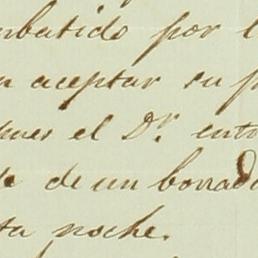 mbatido por l
aceptar su p
el Dr. entr
de un borrad
ta noche.